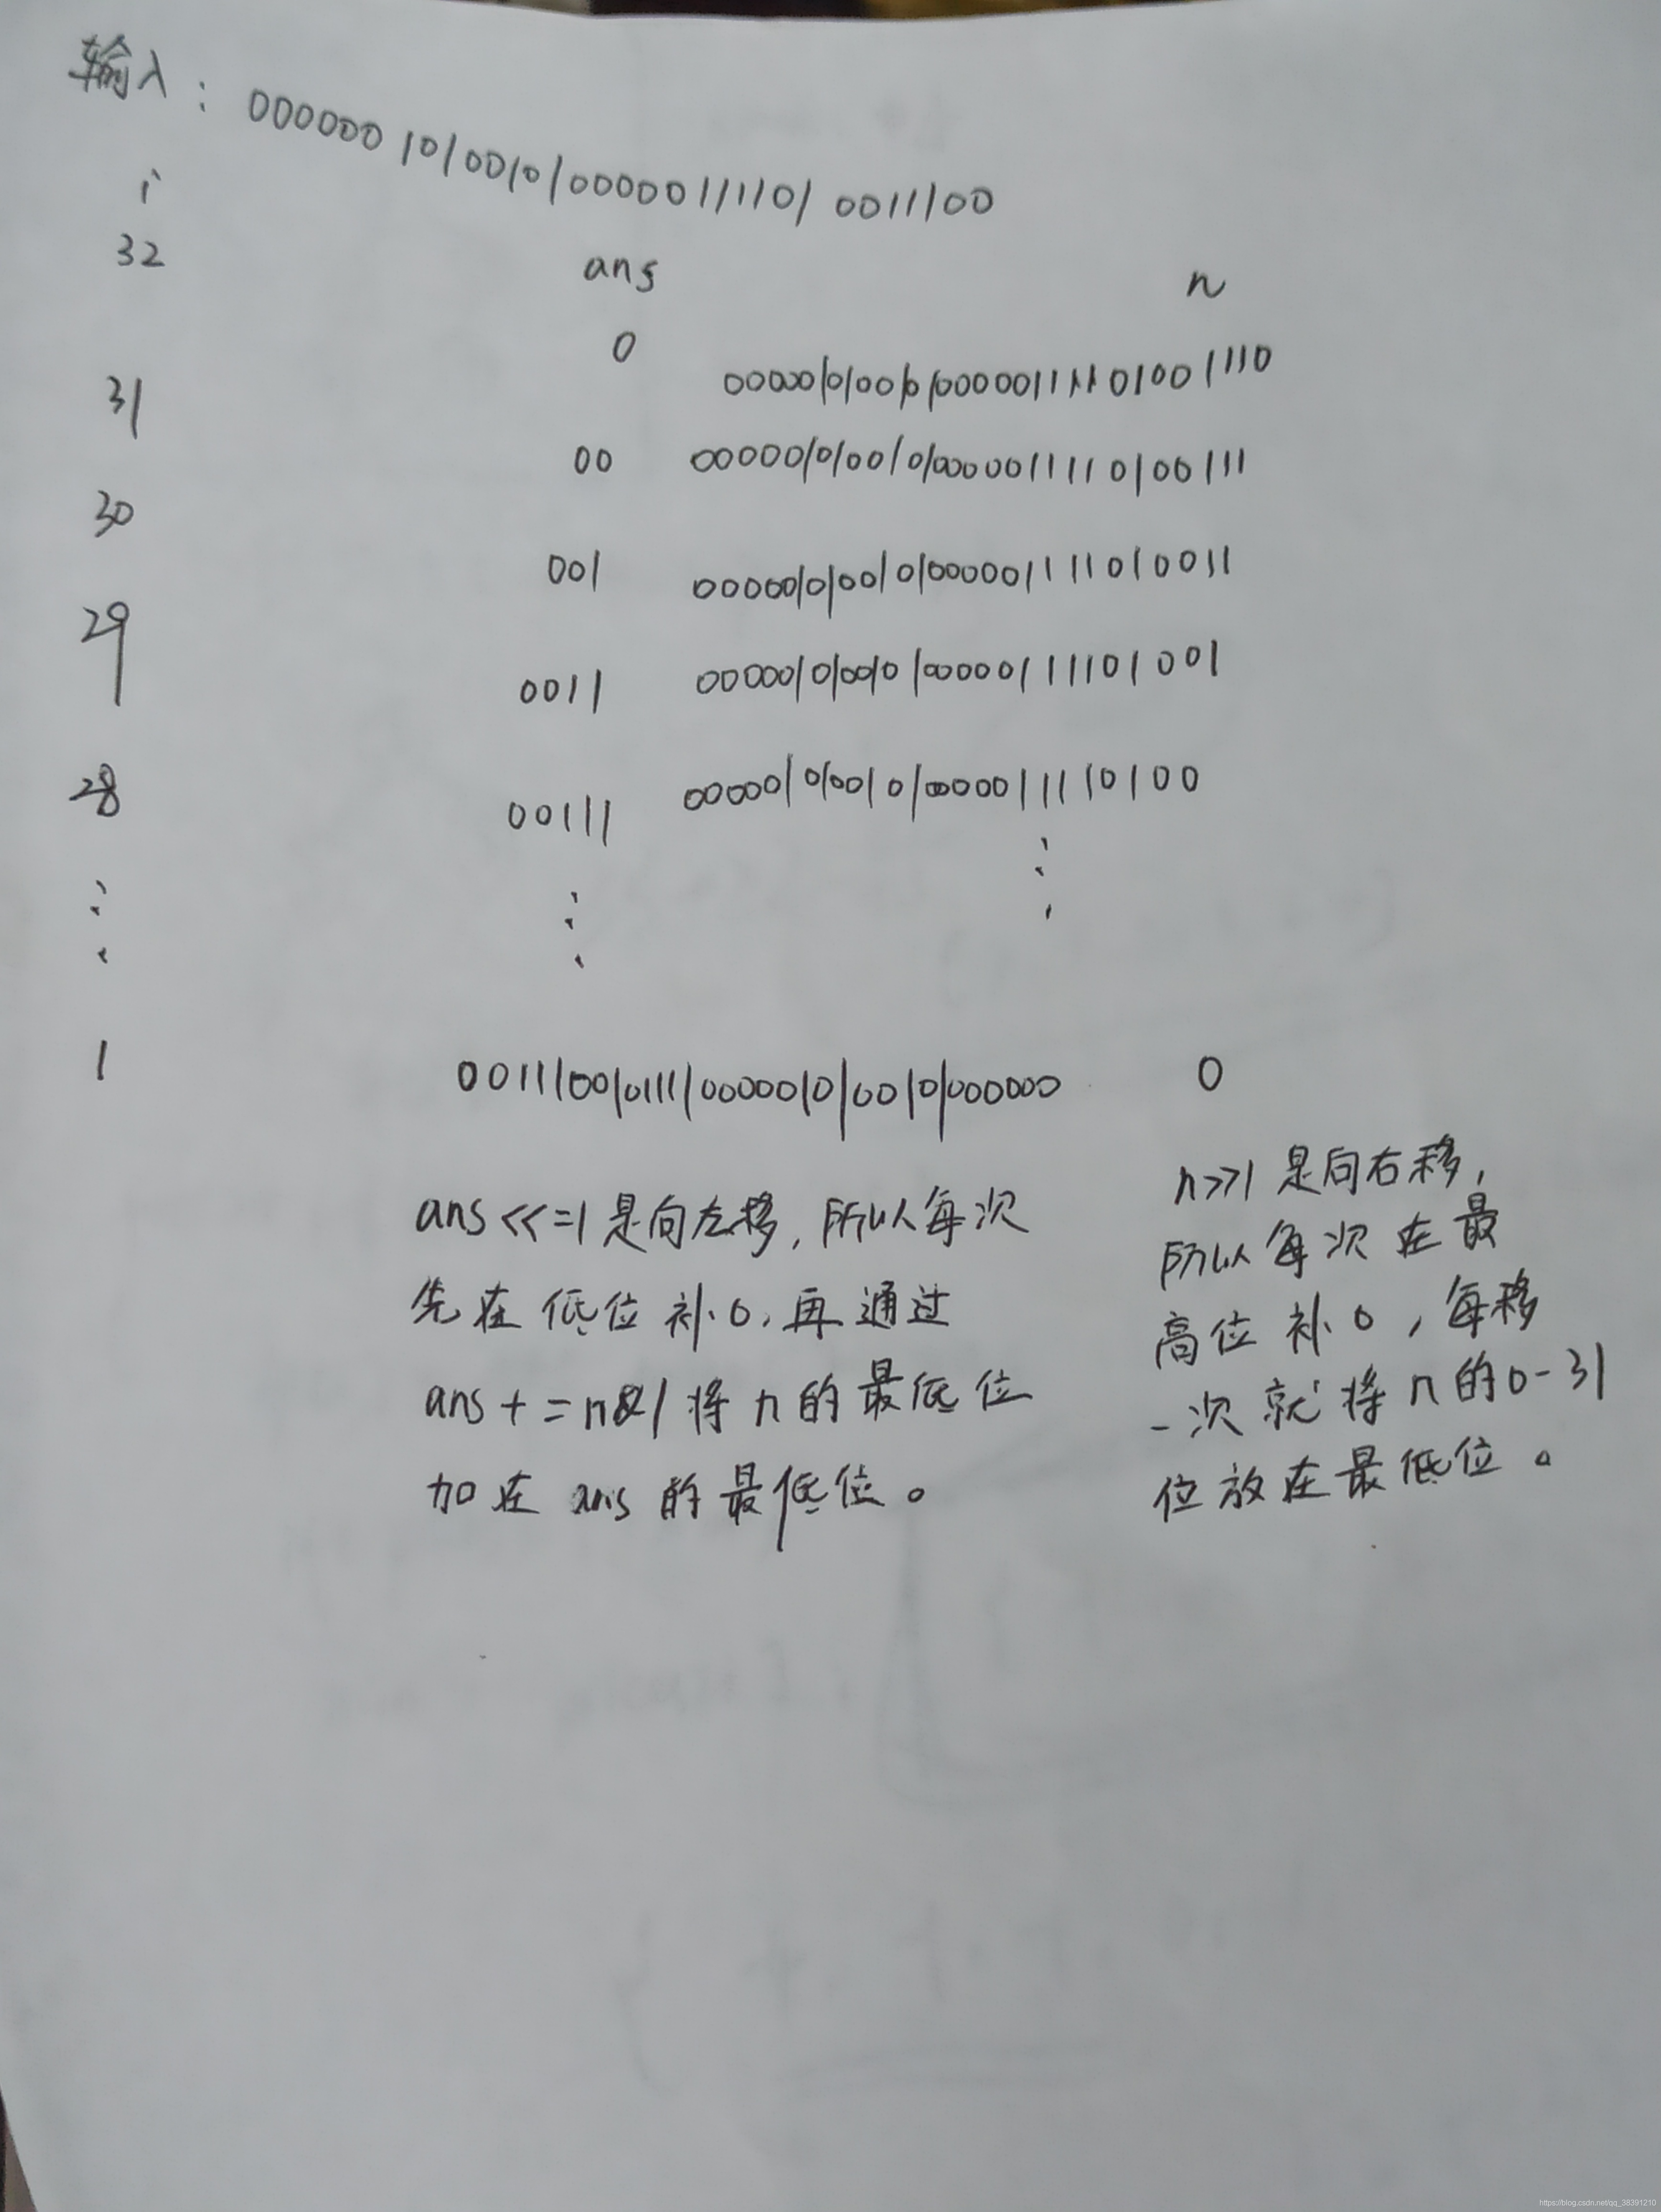 输入: 000000 1010010100000111101 0011100
i
32
ans
n
0
0000001010010100000111101001110
31
00
000000101001010000011110100111
30
001
0000010100101000001111010011
29
0011
000001010010100000111101001
28
00111
00000101001010000011110100
1
00111001011110000010100101000000
0
ans<<=1是向左移, 所以每次
先在低位补0, 再通过
ans+=n&1将n的最低位
加在ans的最低位。
n>>1是向右移,
所以每次在最
高位补0, 每移
一次就将n的0-31
位放在最低位。
https://blog.csdn.net/qq_38391210